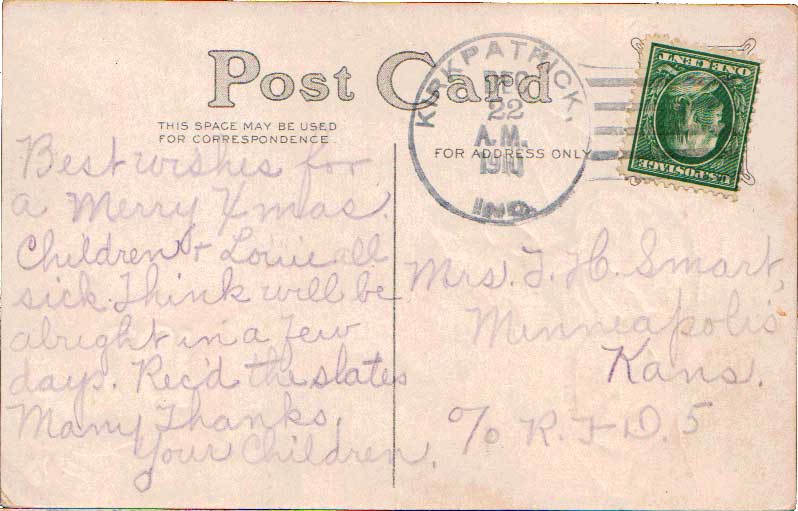 Post Card
THIS SPACE MAY BE USED
FOR CORRESPONDENCE
FOR ADDRESS ONLY
KIRKPATRICK,
DEC
22
A.M.
1910
IND.
ONE CENT
U.S. POSTAGE
Best wishes for
a Merry Xmas.
Children & Louie all
sick. Think will be
alright in a few
days. Rec'd the slates
Many Thanks.
Your Children.
Mrs. J. H. Smart,
Minneapolis
Kans.
c/o R. F. D. 5